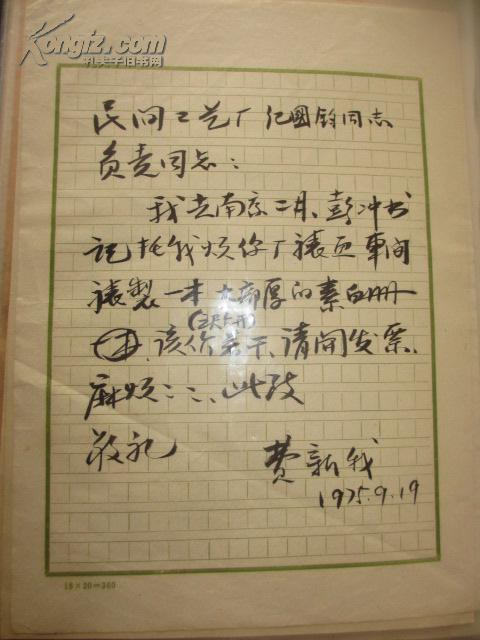 Kongfz.com
孔夫子旧书网
民间工艺厂 纪國鈞同志
负责同志：
我去南京二月、彭冲书
记托我烦你厂裱画車间
裱製一本 大而厚的素白册
该价若干、请開发票、
麻烦：：、此致
敬礼
费新我
1975.9.19
18×20=360